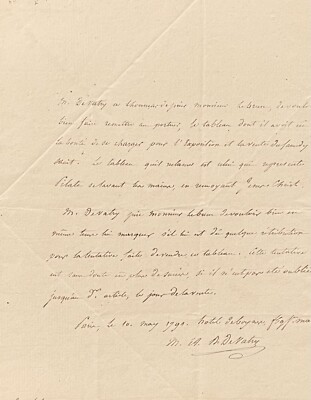 M. De Vatry a l'honneur de prier monsieur lebrun, de vouloir
bien faire remettre au porteur, le tableau dont il avoit eu
la bonté de se charger pour l'Exposition et la vente du lundy
huit. Le tableau qu'il réclame est celui qui représente
Pilate se lavant les mains, en renvoyant Jesus Christ.
M. De Vatry prie monsieur Lebrun de vouloir bien en
même tems lui marquer s'il lui est dû quelque rétribution
pour la tentative faite de vendre ce tableau. Cette tentative
eut sans doute eu plus de succès, si il n'eut pas été oublié
jusqu'au article, le jour de la vente.
Paris, le 10. may 1790. hotel de
M. A. De Vatry